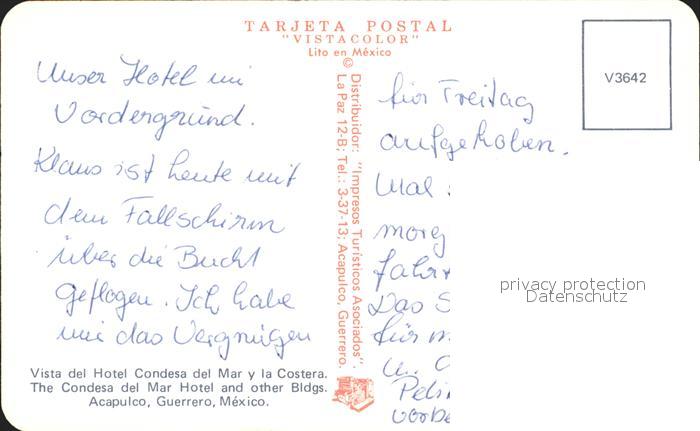 TARJETA POSTAL
"VISTACOLOR"
Lito en México
©
V3642
Unser Hotel im
Vordergrund.
Klaus ist heute mit
dem Fallschirm
über die Bucht
geflogen. Ich habe
mir das Vergnügen
Distribuidor: "Impresos Turísticos Asociados".
La Paz 12-B; Tel.: 3-37-13; Acapulco, Guerrero.
für Freitag
aufgehoben.
Mal
morg
fahr
Das S
für m
u.
vorbe
privacy protection
Datenschutz
Vista del Hotel Condesa del Mar y la Costera.
The Condesa del Mar Hotel and other Bldgs.
Acapulco, Guerrero, México.